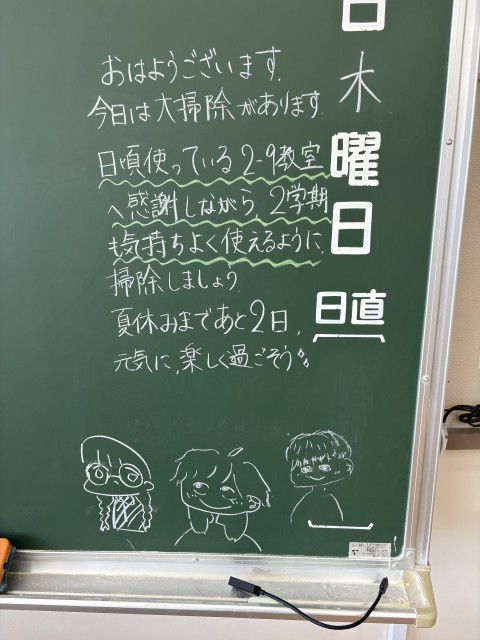 おはようございます。
今日は大掃除があります。
日頃使っている2-9教室
へ感謝しながら、2学期
も気持ちよく使えるように、
掃除しましょう。
夏休みまであと2日、
元気に、楽しく過ごそう。
日
木
曜
日
日直